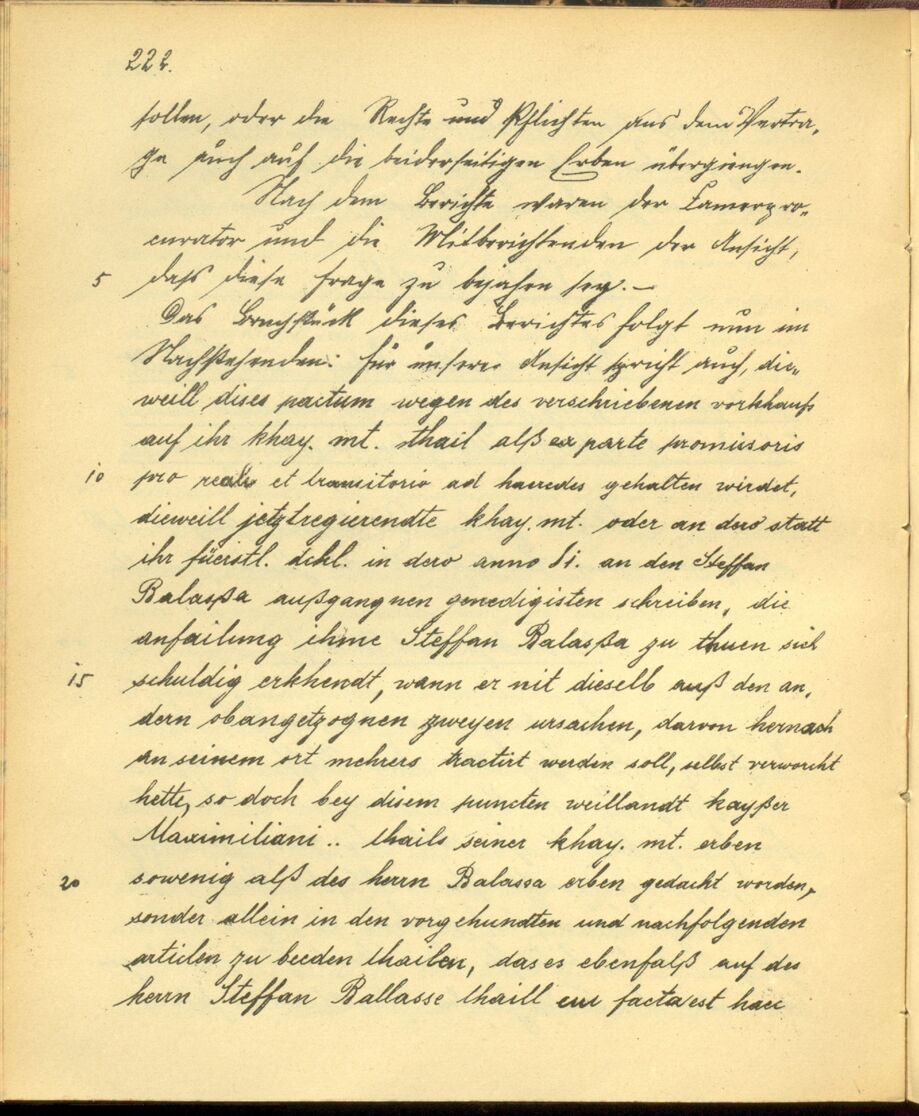 222.
sollen, oder die Rechte und Pflichten aus dem Vertra„
ge auch auf die beiderseitigen Erben übergiengen.
Nach dem Berichte waren der Camerpro„
curator und die Mitberichtenden der Ansicht,
5 daß diese Frage zu bejahen sey. —
Das Bruchstück dieses Berichtes folgt nun im
Nachstehenden: Für unsere Ansicht spricht auch, die„
weill dises pactum wegen des verschriebenen vorkhaufs
auf ihr khay. mt. thail alß ex parte promissoris
10 pro reali et transitorio ad haeredes gehalten wirdet,
dieweill jetztregierendte khay. mt. oder an dero statt
ihr füerstl. dchl. in dero anno 81. an den Steffan
Balaßa außgangnen genedigisten schreiben, die
anfailung ihme Steffan Balaßa zu thuen sich
15 schuldig erkhendt, wann er nit dieselb auß den an„
dern obangetzognen zweyen ursachen, darvon hernach
an seinem ort mehrers tractirt werden soll, selbst verworcht
hette, so doch bey disem puncten weillandt kayßer
Maximiliani .. thails seiner khay. mt. erben
20 sowenig alß des herrn Balassa erben gedacht worden,
sonder allein in den vorgehundten und nachfolgenden
articlen zu beeden thailen, das es ebenfalß auf des
herrn Steffan Ballasse thaill cui facta est haec